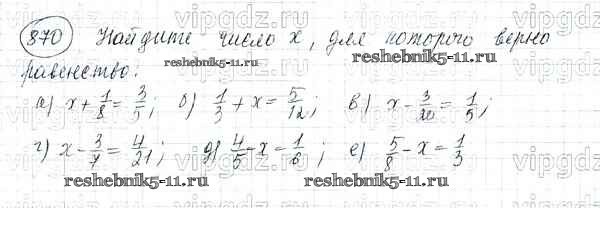 vipgdz.ru vipgdz.ru vipgdz.ru
870 Найдите число x, для которого верно
reshebnik5-11.ru reshebnik5-11.ru
равенство:
а) x + 1/8 = 3/5; б) 1/3 + x = 5/12; в) x - 3/20 = 1/5;
vipgdz.ru vipgdz.ru vipgdz.ru
г) x - 3/7 = 4/21; д) 4/5 - x = 1/6; е) 5/8 - x = 1/3
reshebnik5-11.ru reshebnik5-11.ru